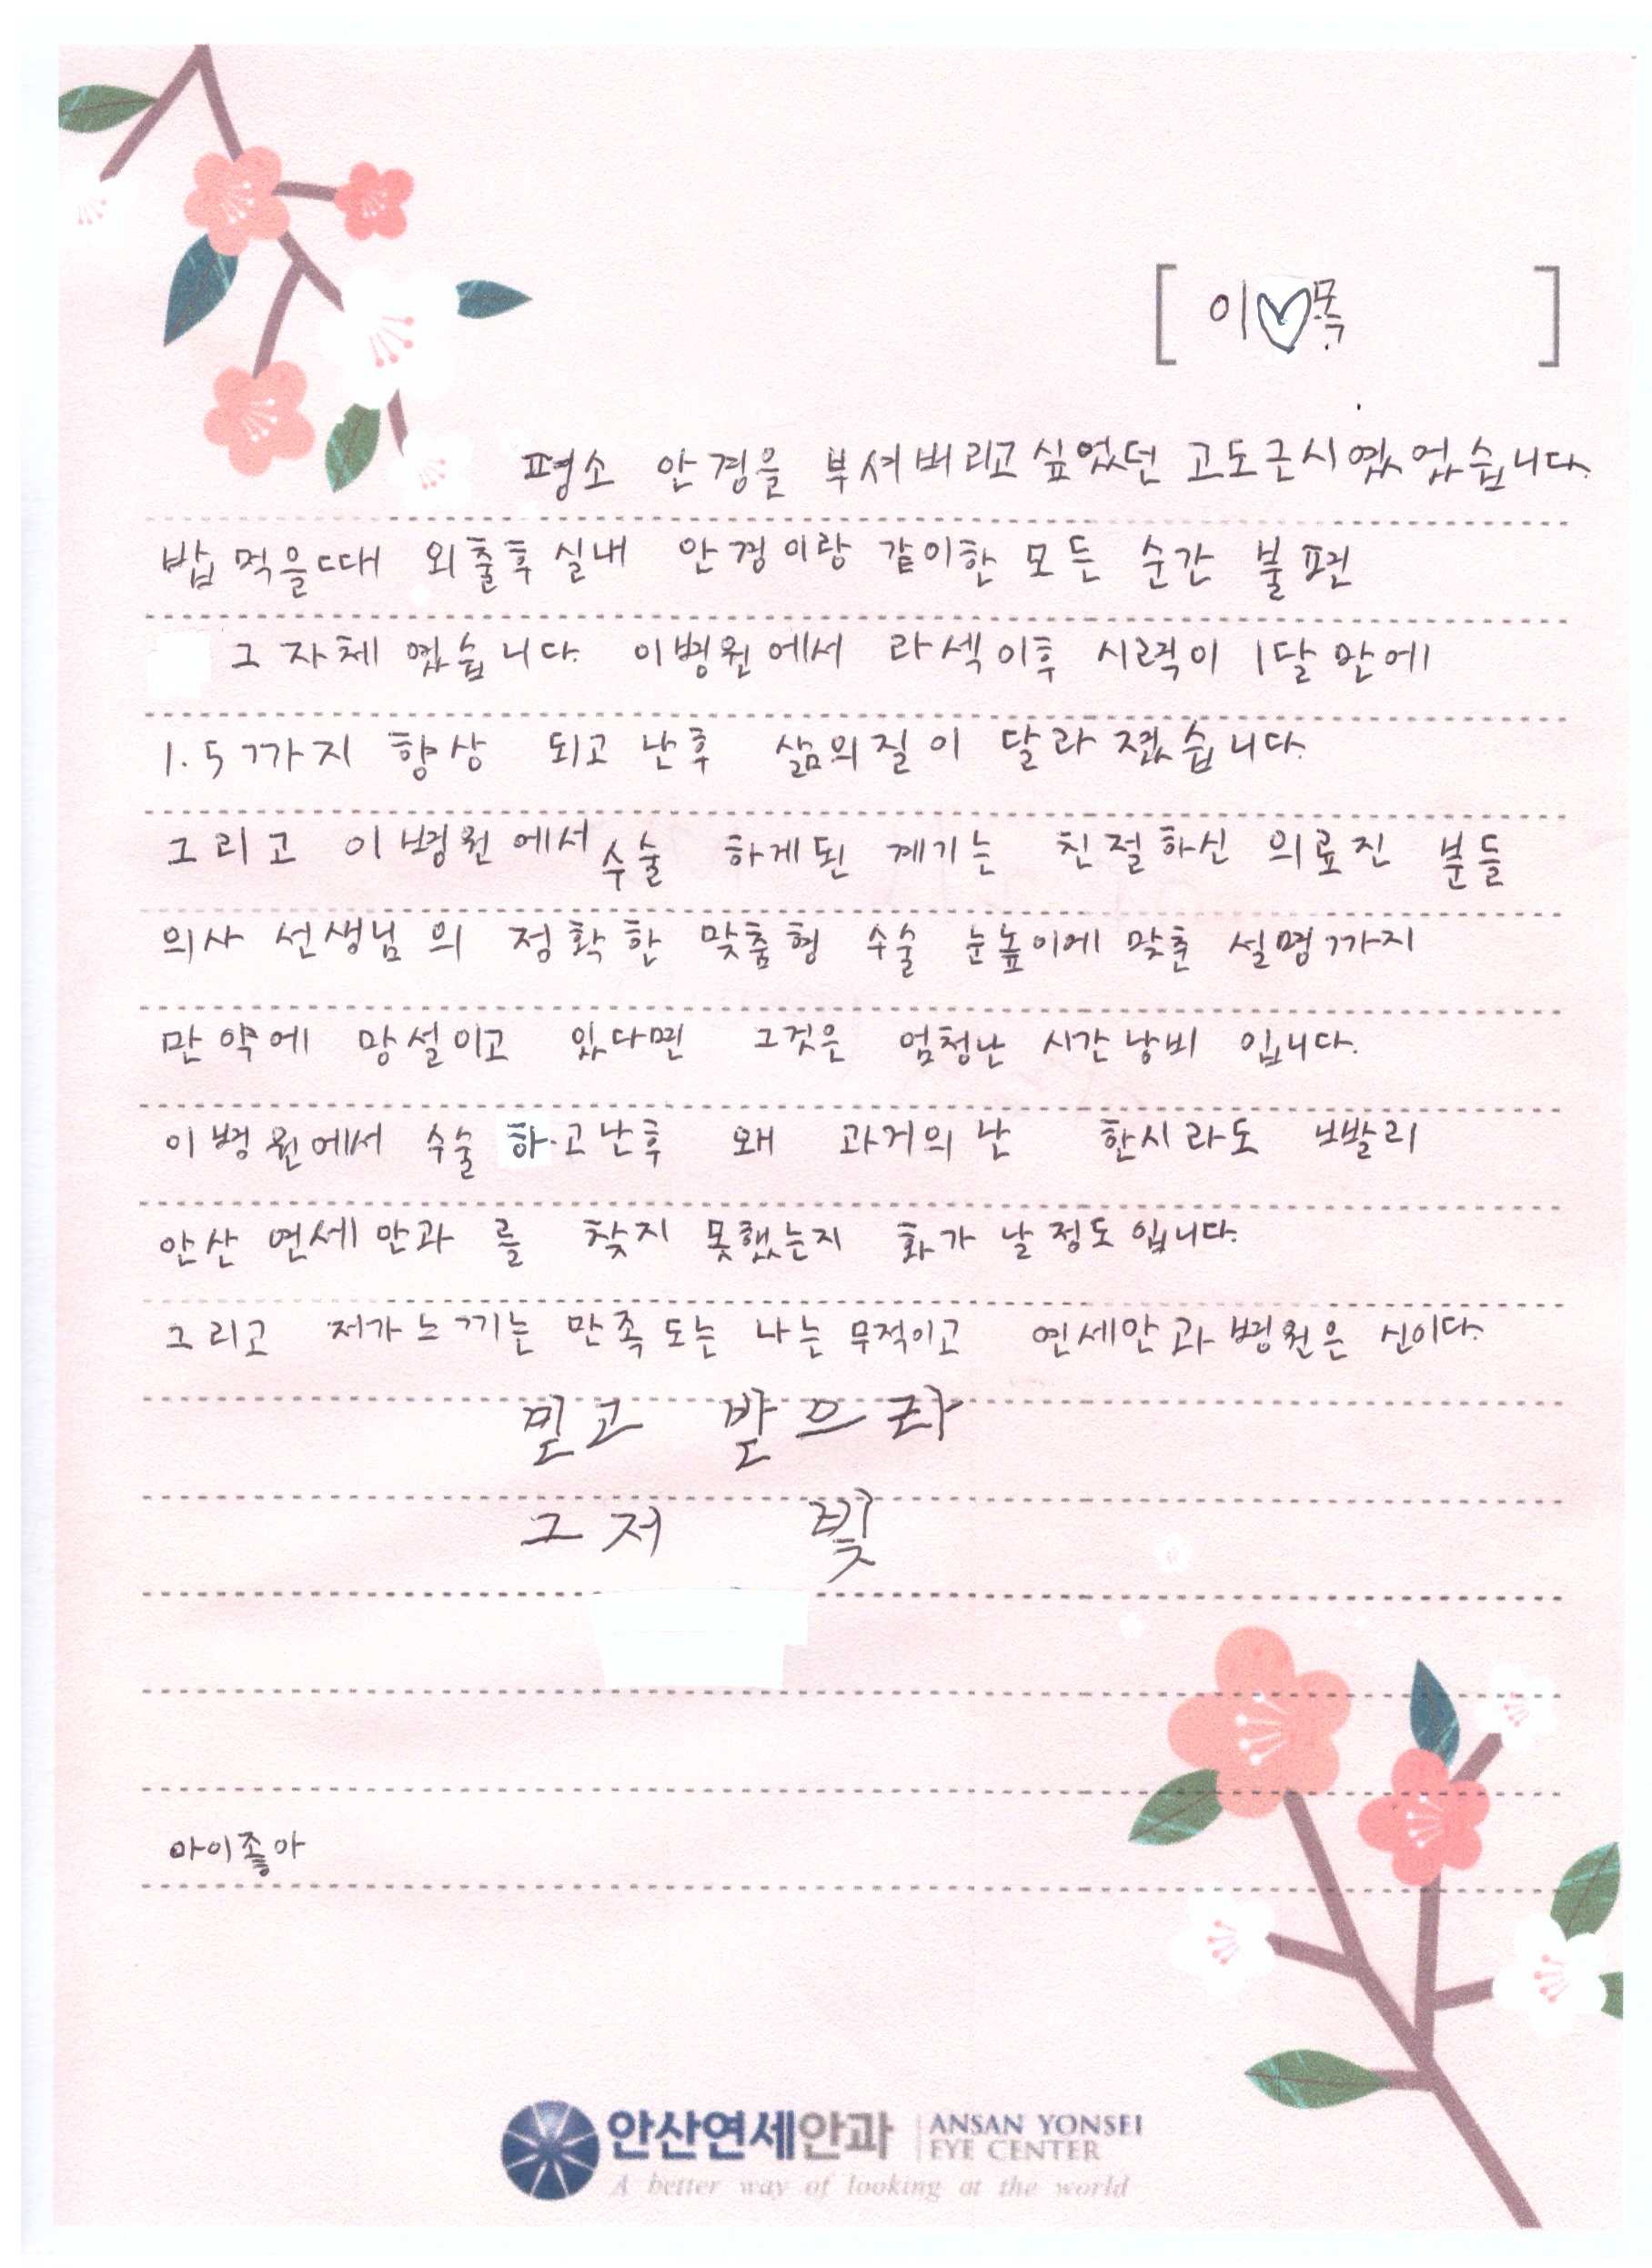 [ 이♡목 ]
평소 안경을 부셔버리고 싶었던 고도근시였었습니다.
밥 먹을때 외출후실내 안경이랑 같이한 모든 순간 불편
그 자체 였습니다. 이병원에서 라섹이후 시력이 1달만에
1.5까지 향상 되고 난후 삶의질이 달라졌습니다.
그리고 이병원에서 수술 하게된 계기는 친절하신 의료진 분들
의사 선생님의 정확한 맞춤형 수술 눈높이에 맞춘 설명까지
만약에 망설이고 있다면 그것은 엄청난 시간낭비 입니다.
이병원에서 수술 하고난후 왜 과거의 난 한시라도 빨리
안산 연세안과를 찾지 못했는지 화가 날정도입니다.
그리고 저가느끼는 만족도는 나는 무적이고 연세안과병원은 신이다.
믿고 받으라
그저 빛
아이좋아
안산연세안과 ANSAN YONSEI EYE CENTER
A better way of looking at the world